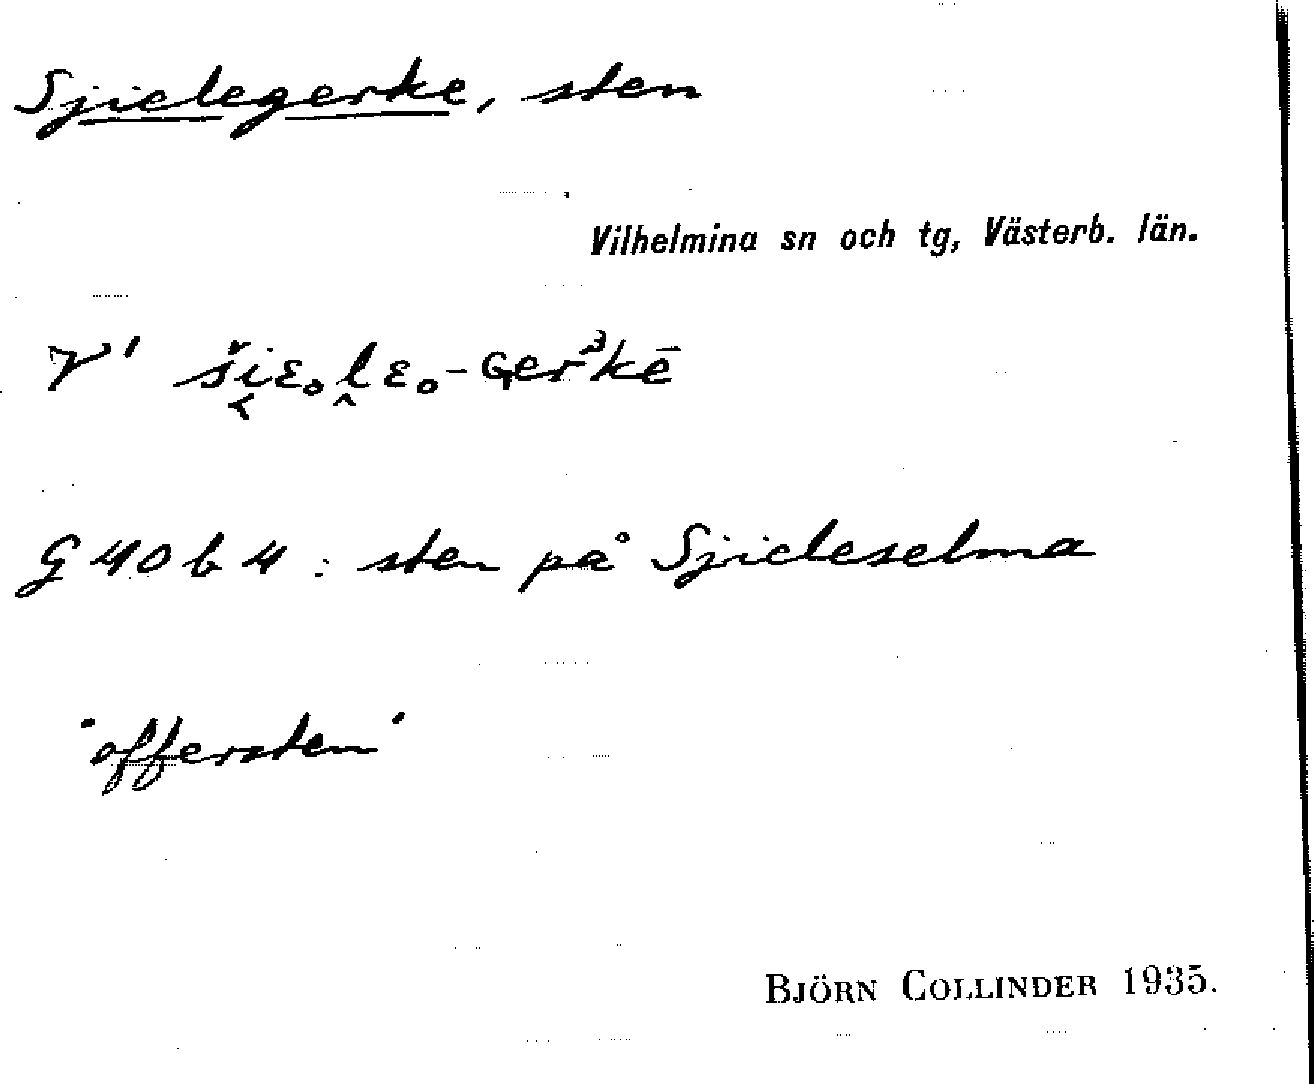 Sjielegerke, sten
Vilhelmina sn och tg, Västerb. län.
V' ši̮ɛ₀ḽɛ₀-Gerᵌkē
G 40 b 4 : sten på Sjieleselma
"offersten"
BJÖRN COLLINDER 1935.